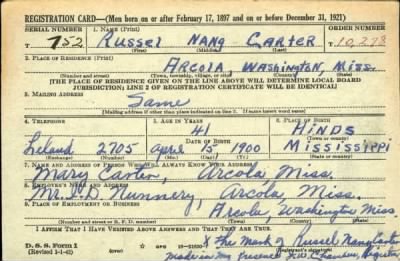 REGISTRATION CARD—(Men born on or after February 17, 1897 and on or before December 31, 1921)
SERIAL NUMBER 1. NAME (Print) ORDER NUMBER
T 752 Russel Nang Carter T 10,278
(First) (Middle) (Last)
2. PLACE OF RESIDENCE (Print)
Arcola, Washington, Miss.
(Number and street) (Town, township, village, or city) (County) (State)
[THE PLACE OF RESIDENCE GIVEN ON THE LINE ABOVE WILL DETERMINE LOCAL BOARD
JURISDICTION; LINE 2 OF REGISTRATION CERTIFICATE WILL BE IDENTICAL]
3. MAILING ADDRESS
Same
[Mailing address if other than place indicated on line 2. If same insert word same]
4. TELEPHONE 5. AGE IN YEARS 6. PLACE OF BIRTH
41 Hinds
DATE OF BIRTH (Town or county)
Leland 2705 April 15 1900 Mississippi
(Exchange) (Number) (Mo.) (Day) (Yr.) (State or country)
7. NAME AND ADDRESS OF PERSON WHO WILL ALWAYS KNOW YOUR ADDRESS
Mary Carter, Arcola Miss.
8. EMPLOYER'S NAME AND ADDRESS
Mr. J.D. Nunnery, Arcola Miss.
9. PLACE OF EMPLOYMENT OR BUSINESS
Arcola, Washington Miss.
(Number and street or R. F. D. number) (Town) (County) (State)
I AFFIRM THAT I HAVE VERIFIED ABOVE ANSWERS AND THAT THEY ARE TRUE.
D. S. S. Form 1
(Revised 1-1-42) GPO X The Mark of Russel Nang Carter
made in my presence J.W. Chambers, Registrar